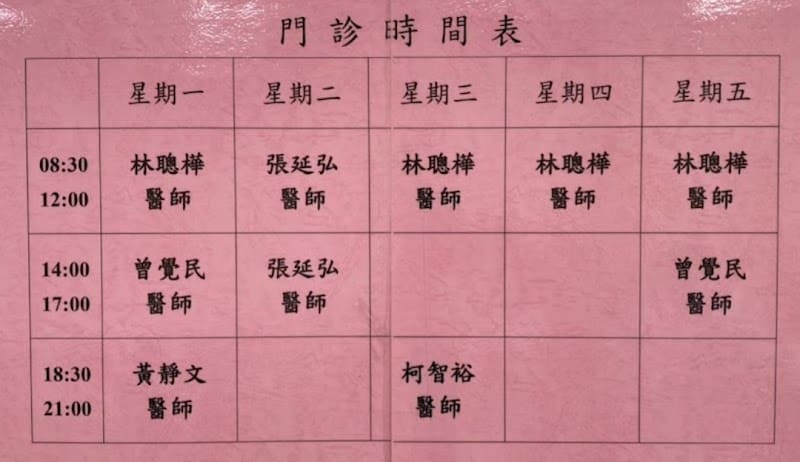 門診時間表
星期一 星期二 星期三 星期四 星期五
08:30 林聰樺 張延弘 林聰樺 林聰樺 林聰樺
12:00 醫師 醫師 醫師 醫師 醫師
14:00 曾覺民 張延弘 曾覺民
17:00 醫師 醫師 醫師
18:30 黃靜文 柯智裕
21:00 醫師 醫師